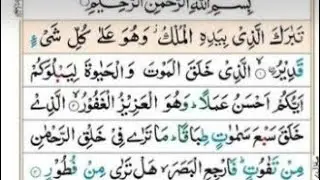 بِسْمِ اللّٰهِ الرَّحْمٰنِ الرَّحِيْمِ
تَبٰرَكَ الَّذِیْ بِیَدِهِ الْمُلْكُ٘ وَهُوَ عَلٰی كُلِّ شَیْءٍ
قَدِیْرُۙ۟ الَّذِیْ خَلَقَ الْمَوْتَ وَالْحَیٰوةَ لِیَبْلُوَكُمْ
اَیُّكُمْ اَحْسَنُ عَمَلًاؕ وَهُوَ الْعَزِیْزُ الْغَفُوْرُۙ الَّذِیْ
خَلَقَ سَبْعَ سَمٰوٰتٍ طِبَاقًاؕ مَا تَرٰی فِیْ خَلْقِ الرَّحْمٰنِ
مِنْ تَفٰوُتٍؕ فَارْجِعِ الْبَصَرَۙ هَلْ تَرٰی مِنْ فُطُوْرٍ